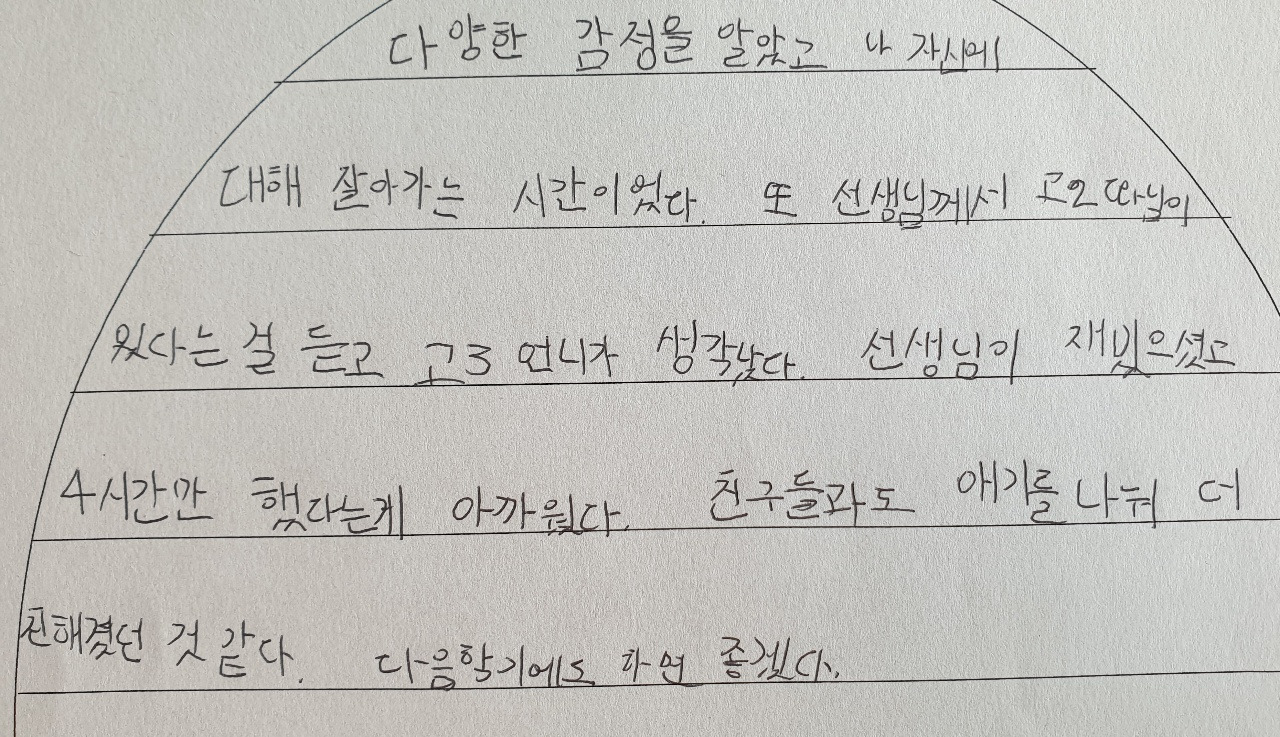 다양한 감정을 알았고 나 자신에
대해 잘아가는 시간이었다. 또 선생님께서 고2 따님이
있다는 걸 듣고 고3 언니가 생각났다. 선생님이 재밌으셨고
4시간만 했다는게 아까웠다. 친구들과도 얘기를 나눠 더
친해졌던 것 같다. 다음학기에도 하면 좋겠다.